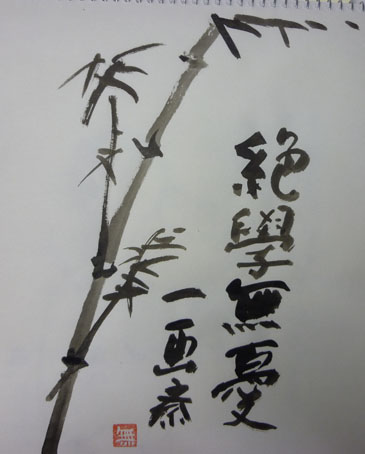 絶學無憂
一画
無